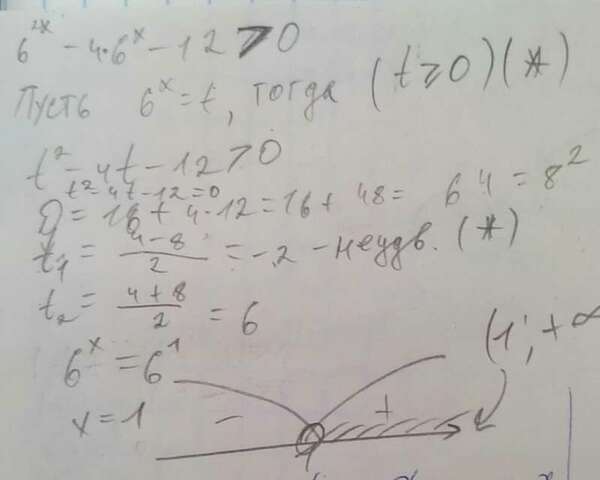 6^{2x} - 4·6^x - 12 > 0
Пусть 6^x = t, тогда (t ≥ 0) (*)
t² - 4t - 12 > 0
t² - 4t - 12 = 0
D = 16 + 4·12 = 16 + 48 = 64 = 8²
t₁ = (4-8)/2 = -2 - неудв. (*)
t₂ = (4+8)/2 = 6
6^x = 6^1
x = 1
(1; +∞
- +
1